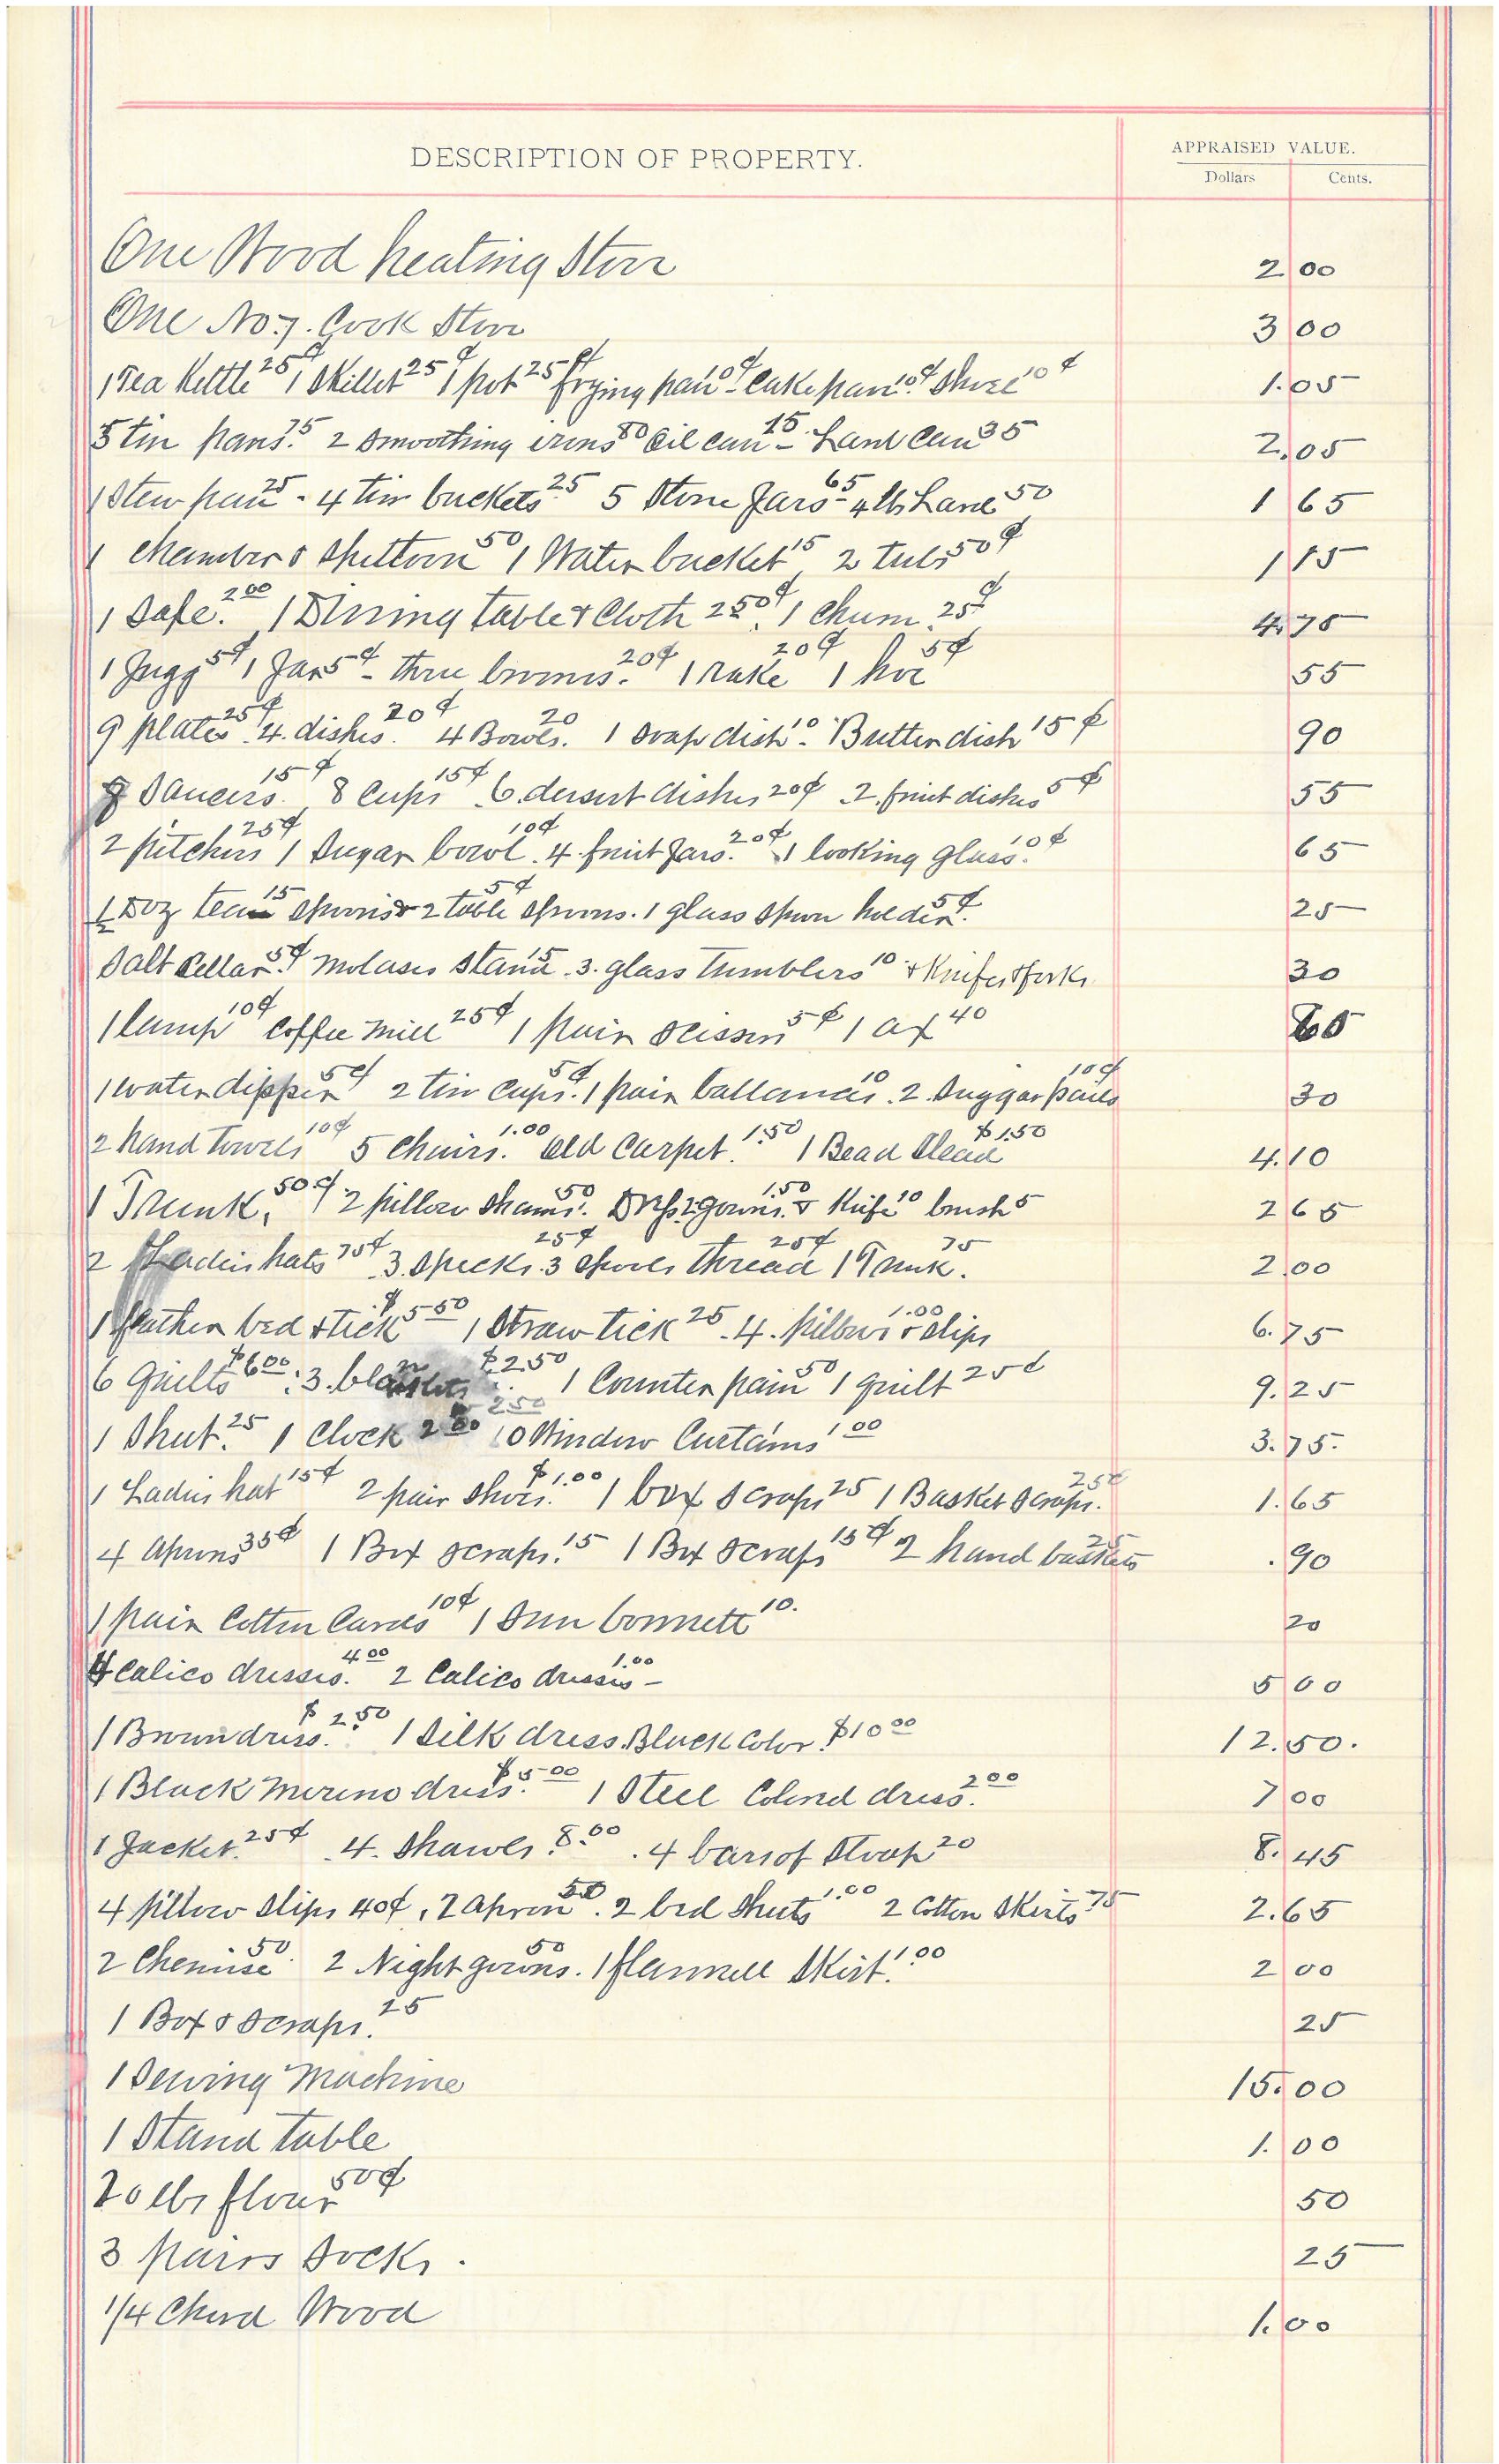 DESCRIPTION OF PROPERTY.
APPRAISED VALUE.
Dollars Cents.
One Wood heating Stove 2 00
One No 7. Cook Stove 3 00
1 Tea Kettle 25¢ 1 Skillet 25¢ 1 pot 25¢ frying pan 10¢ Cake pan 10¢ 10¢ 1.05
5 tin pans 75 2 Smoothing irons 80 Oil can 15 - Lard Can 35 2,05
1 Stew pan 25 - 4 tin buckets 25 5 Stone Jars 65 - 4 lbs Lard 50 1 65
1 chamber & Spittoon 50 1 Water bucket 15 2 tubs 50¢ 1 15
1 Safe. 2 00 1 Dining table & Cloth 2 50¢. 1 Churn. 25¢ 4.75
1 Jugg 5¢ 1 Jar 5¢ - three brooms. 20¢ 1 rake 20¢ 1 hoe 5¢ 55
9 plates 25¢ 4. dishes. 20¢ 4 Bowls. 20 1 Soap dish 10 - Butter dish 15¢ 90
Saucers. 15¢ 8 Cups 15¢ 6. desert dishes 20¢ 2. fruit dishes 5¢ 55
2 pitchers 25¢ 1 Sugar bowl. 10¢ 4. fruit Jars. 20¢ 1 looking glass. 10¢ 65
1 Doz tea 15 spoons & 2 table spoons. 5¢ 1 glass spoon holder. 5¢ 25
Salt Cellar. 5¢ Molases stand 15. 3. glass Tumblers 10 & Knifes & forks 30
1 lamp 10¢ Coffee Mill 25¢ 1 pair scissors 5¢ 1 ax 40 80
1 water dipper 5¢ 2 tin cups. 5¢ 1 pair ballances 10. 2. Suggar pails 10¢ 30
2 hand Towels 10¢ 5 Chairs. 1.00 Old Carpet. 1.50 1 Bead Stead $1.50 4.10
1 Trunk, 50¢ 2 pillow Shams. 50 Dress 2 gowns. 1.50 & Knife 10 brush 5 2 65
2 Ladies hats 75¢ 3. specks. 25¢ 3 spools thread 25¢ 1 Trunk. 75 2.00
1 feather bed & tick $5 50 1 Straw tick 25. 4. pillows & slips 1.00 6.75
6 Quilts $6 00. 3. blankets $2.50 1 Counter pain 50 1 quilt 25¢ 9.25
1 Sheet. 25 1 Clock 2 50 10 Window Curtains 1 00 3.75.
1 Ladies hat 15¢ 2 pair shoes. $1.00 1 box scraps 25 1 Basket scraps. 25¢ 1.65
4 Aprons 35¢ 1 Box scraps. 15 1 Box scraps 15¢ 2 hand baskets 25 .90
1 pair Cotton Cards 10¢ 1 Sun bonnett 10. 20
4 Calico dresses. 4 00 2 Calico dresses - 1.00 5 00
1 Brown dress. $2.50 1 Silk dress. Black Color. $10 00 12.50.
1 Black Merino dress. $5 00 1 Steel Colored dress. 2 00 7 00
1 Jacket. 25¢ 4. Shawls. 8.00. 4 bars of Soap 20 8.45
4 pillow slips 40¢, 2 apron 50. 2 bed sheets 1.00 2 Cotton Skirts 75 2.65
2 Chemise 50. 2 Night gowns. 50 1 flannell Skirt. 1.00 2 00
1 Box & scraps. 25 25
1 Sewing Machine 15.00
1 Stand table 1.00
20 lbs flour 50¢ 50
3 pairs Socks. 25
1/4 Chord Wood 1.00